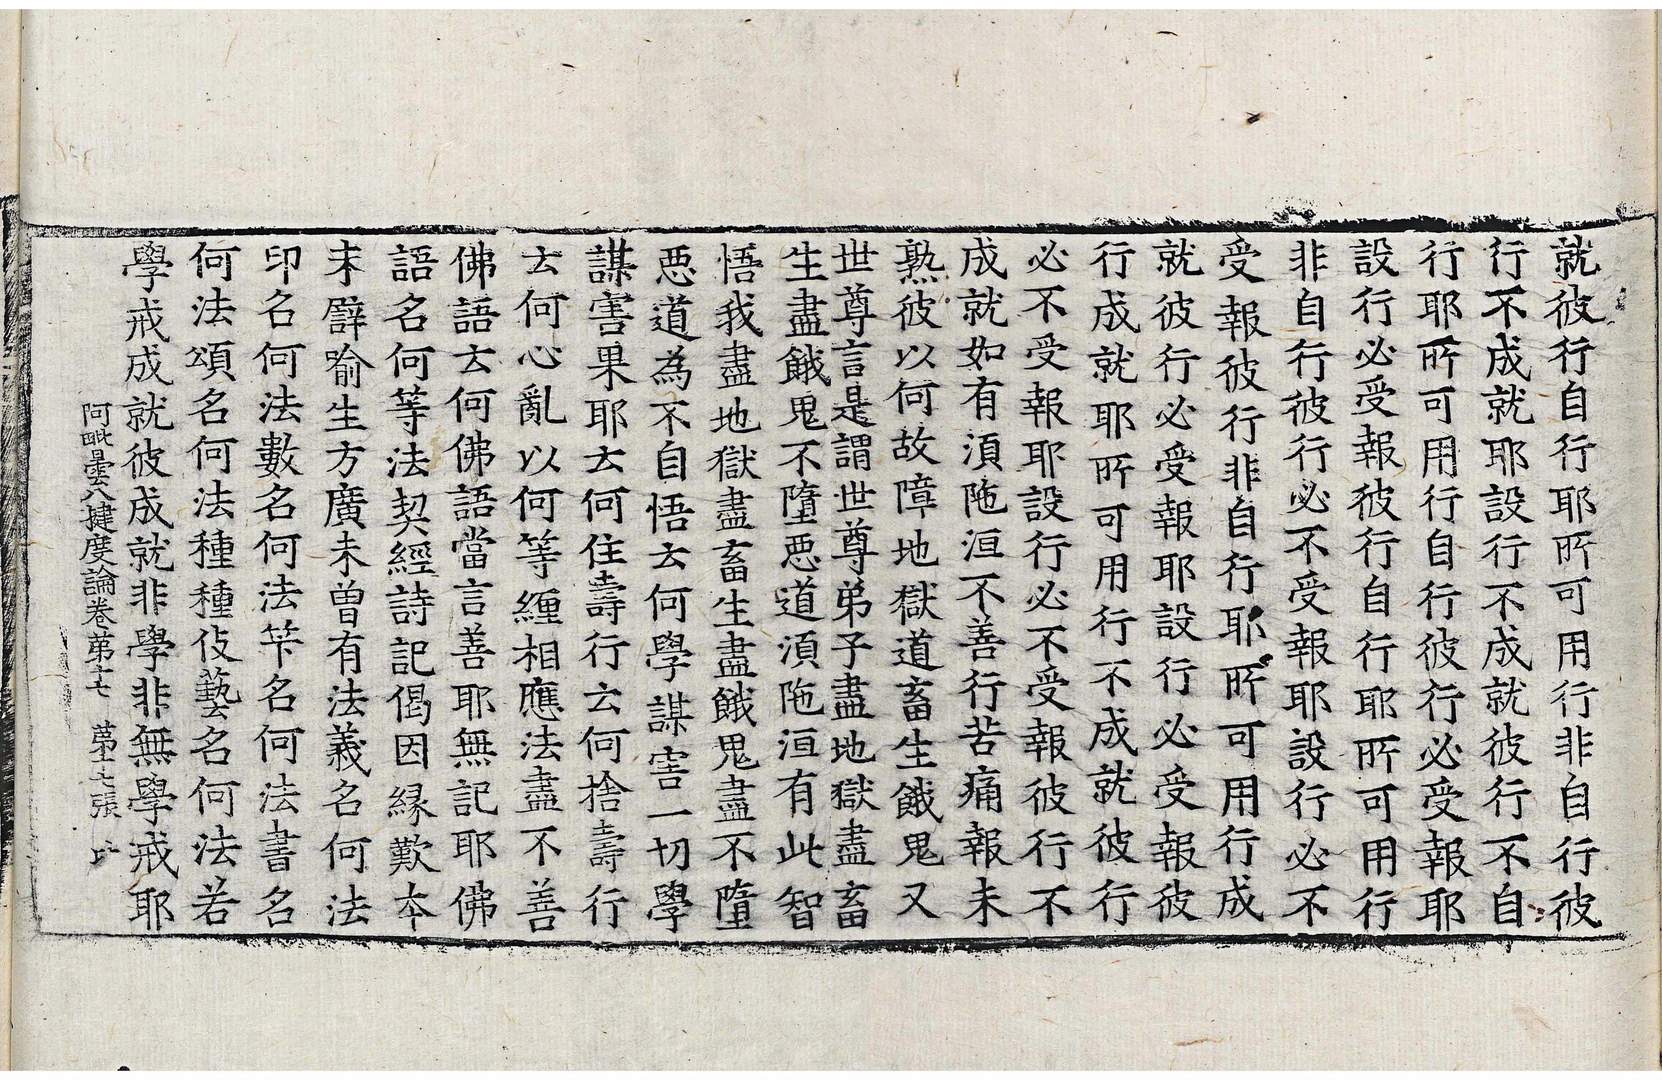 就彼行自行耶所可用行非自行彼
行不成就耶設行不成就彼行不自
行耶所可用行自行彼行必受報耶
設行必受報彼行自行耶所可用行
非自行彼行必不受報耶設行必不
受報彼行非自行耶所可用行成
就彼行必受報耶設行必受報彼
行成就耶所可用行不成就彼行
必不受報耶設行必不受報彼行不
成就如有湏陁洹不善行苦痛報未
熟彼以何故障地獄道畜生餓鬼又
世尊言是謂世尊弟子盡地獄盡畜
生盡餓鬼不墮惡道湏陁洹有此智
悟我盡地獄盡畜生盡餓鬼盡不墮
惡道為不自悟云何學謀害一切學
謀害果耶云何住壽行云何捨壽行
云何心亂以何等纏相應法盡不善
佛語云何佛語當言善耶無記耶佛
語名何等法契經詩記偈因緣歎本
末譬喻生方廣未曾有法義名何法
印名何法數名何法笇名何法書名
何法頌名何法種種伎藝名何法若
學戒成就彼成就非學非無學戒耶
阿毗曇八揵度論卷第十七 第七張